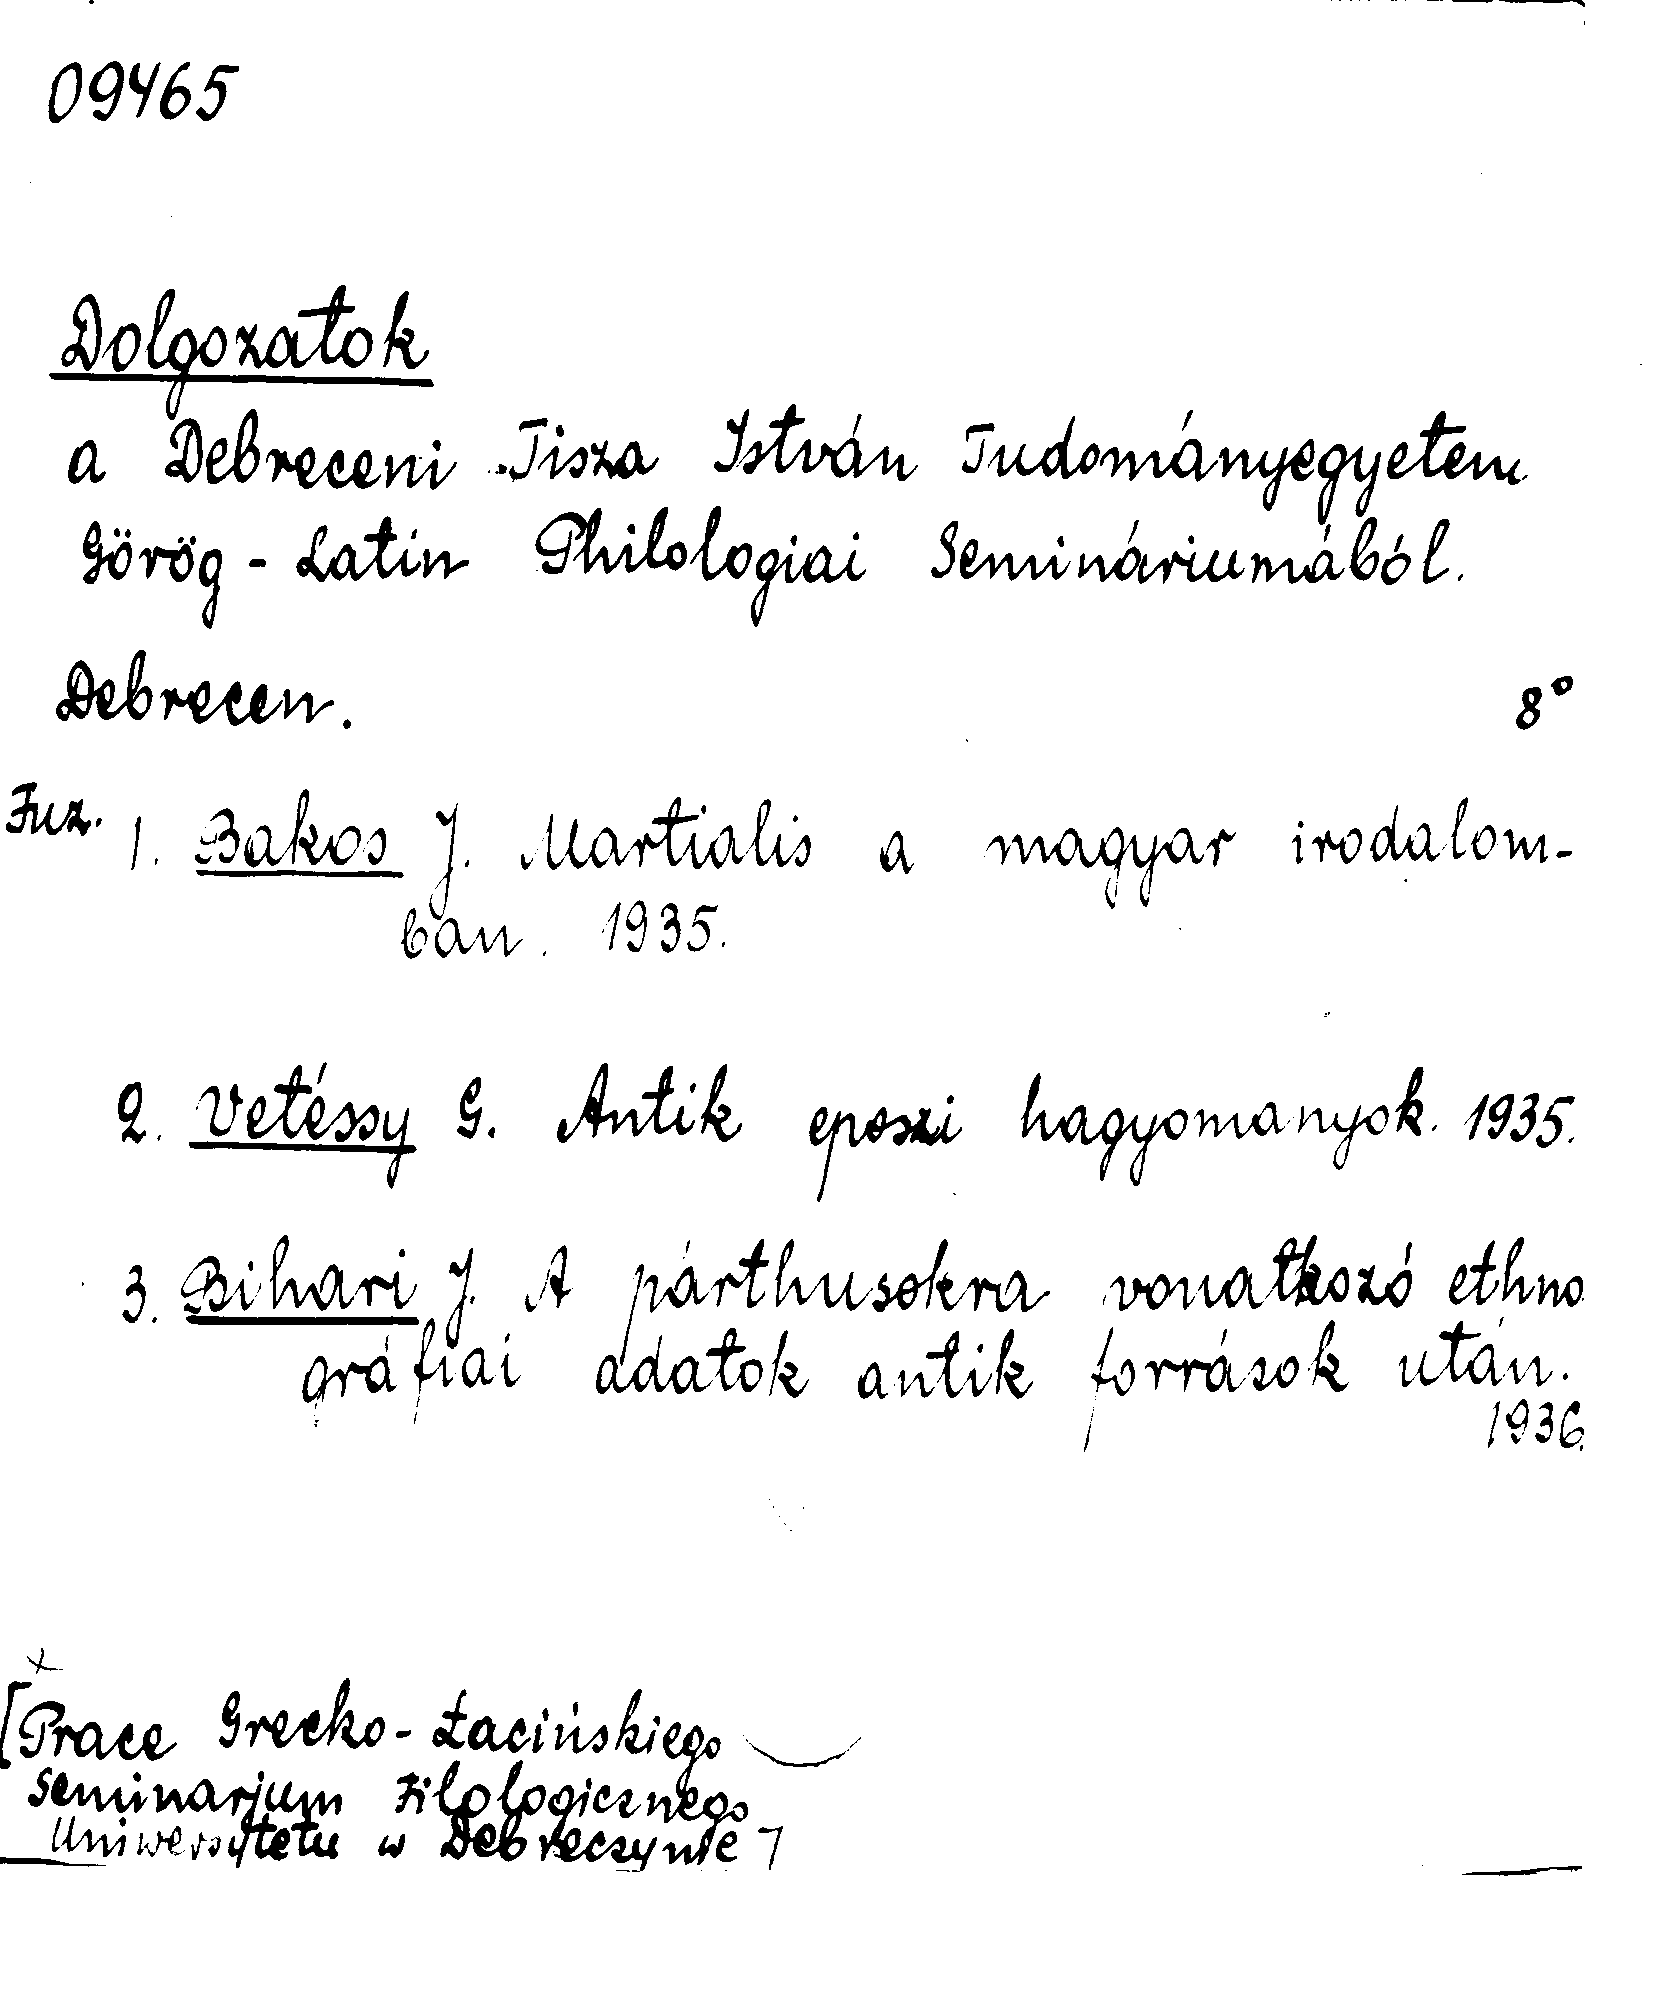 09465
Dolgozatok
a Debreceni Tisza István Tudományegyetem
Görög - Latin Philologiai Semináriumából.
Debrecen. 8°
Fuz. 1. Bakos J. Martialis a magyar irodalom-
ban. 1935.
2. Vetéssy G. Antik eposzi hagyomanyok. 1935.
3. Bihari J. A párthusokra vonatkozó ethno
gráfiai adatok antik források után.
1936.
[Prace Grecko-Łacińskiego
Seminarjum Filologicznego
Uniwersytetu w Debreczynie]